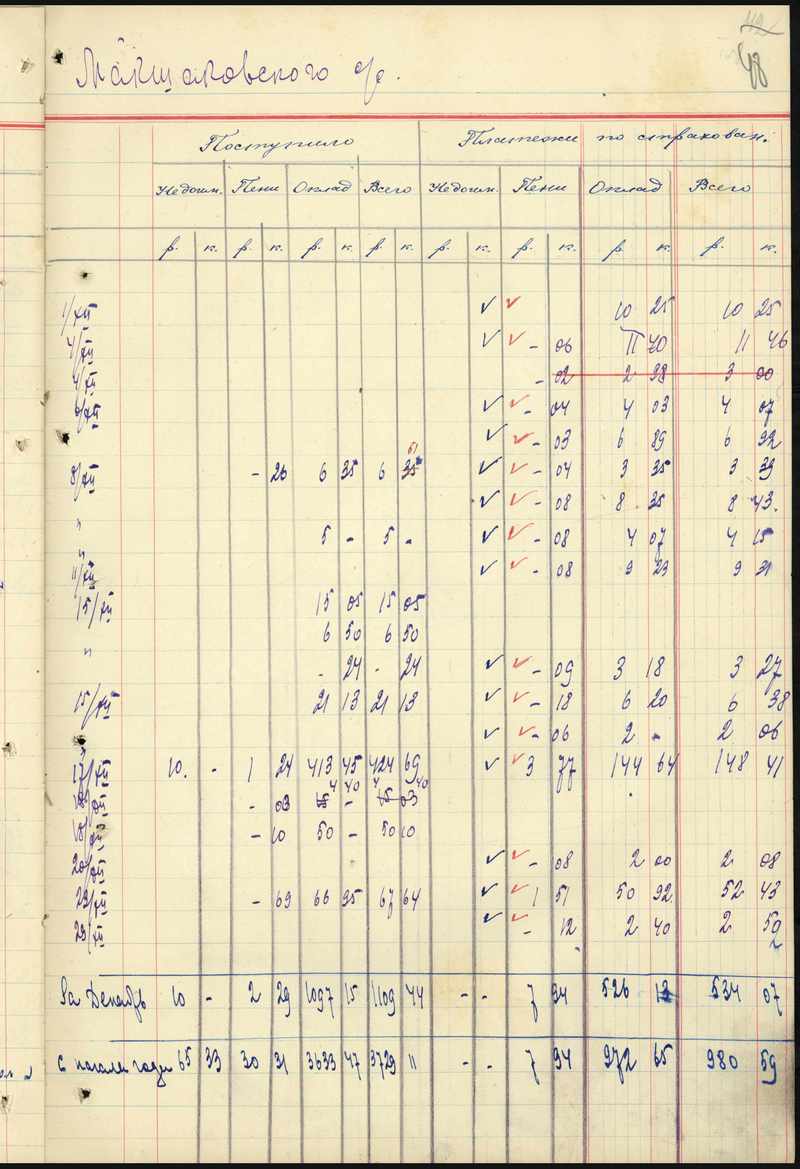 112
48
Макшаковского о/о.
Поступило Платежи по страхован.
Недоим. Пени Оклад Всего Недоим. Пени Оклад Всего
р. к. р. к. р. к. р. к. р. к. р. к. р. к. р. к.
1/XII ✓ ✓ 10 25 10 25
4/XII ✓ ✓ - 06 11 40 11 46
4/XII - 02 2 98 3 00
6/XII ✓ ✓ - 04 4 03 4 07
✓ ✓ - 03 6 89 6 92
61
8/XII - 26 6 35 6 35 ✓ ✓ - 04 3 35 3 39
✓ ✓ - 08 8 35 8 43.
" 5 - 5 - ✓ ✓ - 08 4 07 4 15
"
11/XII ✓ ✓ - 08 9 23 9 31
15/XII 15 05 15 05
6 50 6 50
" - 24 - 24 ✓ ✓ - 09 3 18 3 27
15/XII 21 13 21 13 ✓ ✓ - 18 6 20 6 38
" ✓ ✓ - 06 2 - 2 06
17/XII 10. - 1 24 413 45 424 69 ✓ ✓ 3 77 144 64 148 41
4 40 4 40
18/XII - 03 15 - 15 03
18/XII - 10 50 - 50 10
20/XII ✓ ✓ - 08 2 00 2 08
22/XII - 69 66 95 67 64 ✓ ✓ 1 51 50 92 52 43
23/XII ✓ ✓ - 12 2 40 2 52
За Декабрь 10 - 2 29 1097 15 1109 44 - - 7 94 526 13 534 07
С начала года 65 33 30 31 3633 47 3729 11 - - 7 94 972 65 980 59